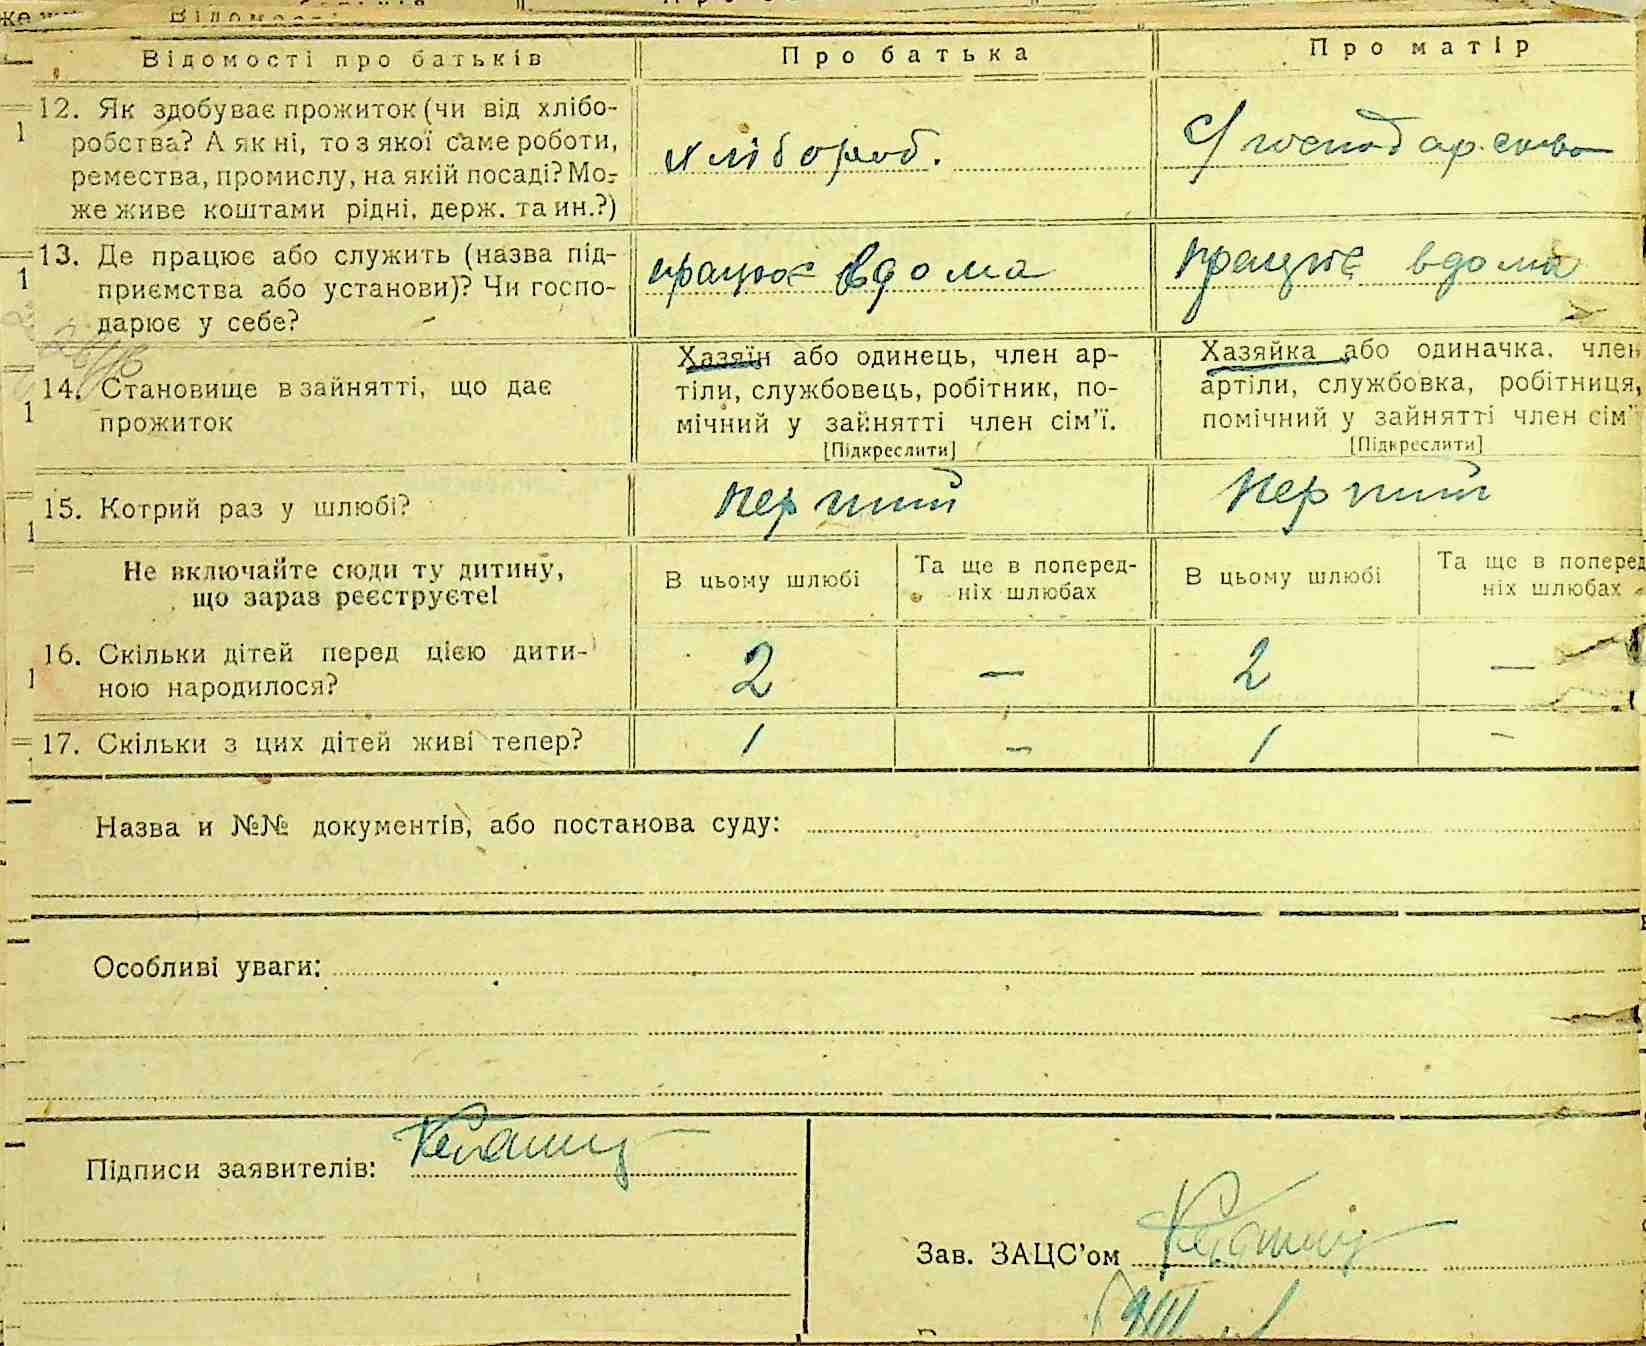 Відомості про батьків Про батька Про матір
12. Як здобуває прожиток (чи від хлібо-
робства? А як ні, то з якої саме роботи,
ремества, промислу, на якій посаді? Мо-
же живе коштами рідні, держ. та ин.?)
хлібороб. С/господарство
13. Де працює або служить (назва під-
приємства або установи)? Чи госпо-
дарює у себе?
працює вдома працює вдома
14. Становище в зайнятті, що дає
прожиток
Хазяїн або одинець, член ар-
тіли, службовець, робітник, по-
мічний у зайнятті член сім'ї.
[Підкреслити]
Хазяйка або одиначка, член
артіли, службовка, робітниця,
помічний у зайнятті член сім'ї
[Підкреслити]
15. Котрий раз у шлюбі? перший перший
Не включайте сюди ту дитину,
що зараз реєструєте!
В цьому шлюбі
Та ще в поперед-
ніх шлюбах
В цьому шлюбі
Та ще в поперед
ніх шлюбах
16. Скільки дітей перед цією дити-
ною народилося?
2 — 2 —
17. Скільки з цих дітей живі тепер? 1 — 1 —
Назва и №№ документів, або постанова суду:
Особливі уваги:
Підписи заявителів:
Зав. ЗАЦС'ом